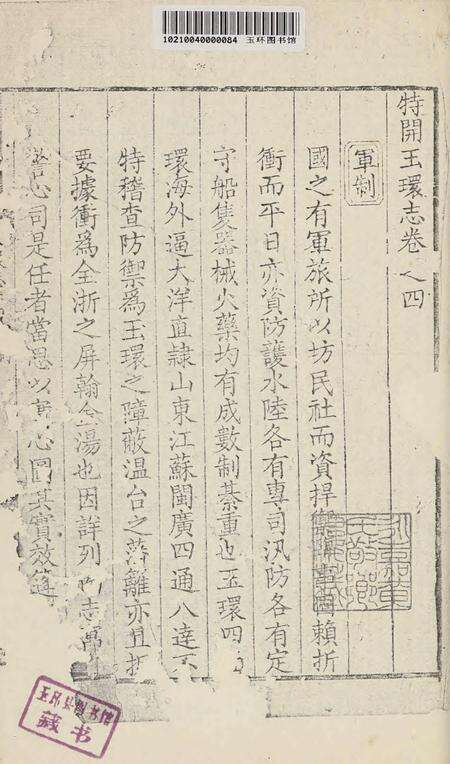 10210040000084 玉环图书馆
特開玉環志卷之四
軍制
國之有軍旅所以坊民社而資捍賴折
衝而平日亦資防護水陸各有專司汛防各有定
守船隻器械火藥均有成數制綦重也玉環四
環海外逼大洋直隷山東江蘇閩廣四通八達
特稽查防禦爲玉環之障蔽温台之藩離亦且
要據衝爲全浙之屏翰金湯也因詳列志
心司是任者當思以實心圖其實效
藏书